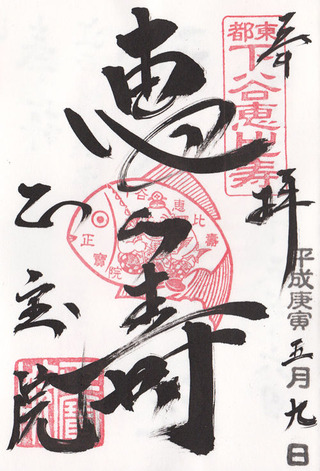 奉拝
東都
下谷恵比寿
平成庚寅五月九日
恵比寿
下谷恵比壽
正寶院
正宝院